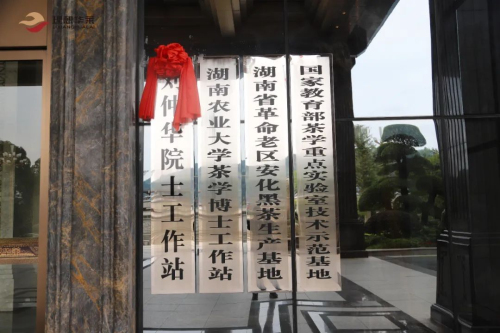 刘仲华院士工作站
湖南农业大学茶学博士工作站
湖南省革命老区安化黑茶生产基地
国家教育部茶学重点实验室技术示范基地